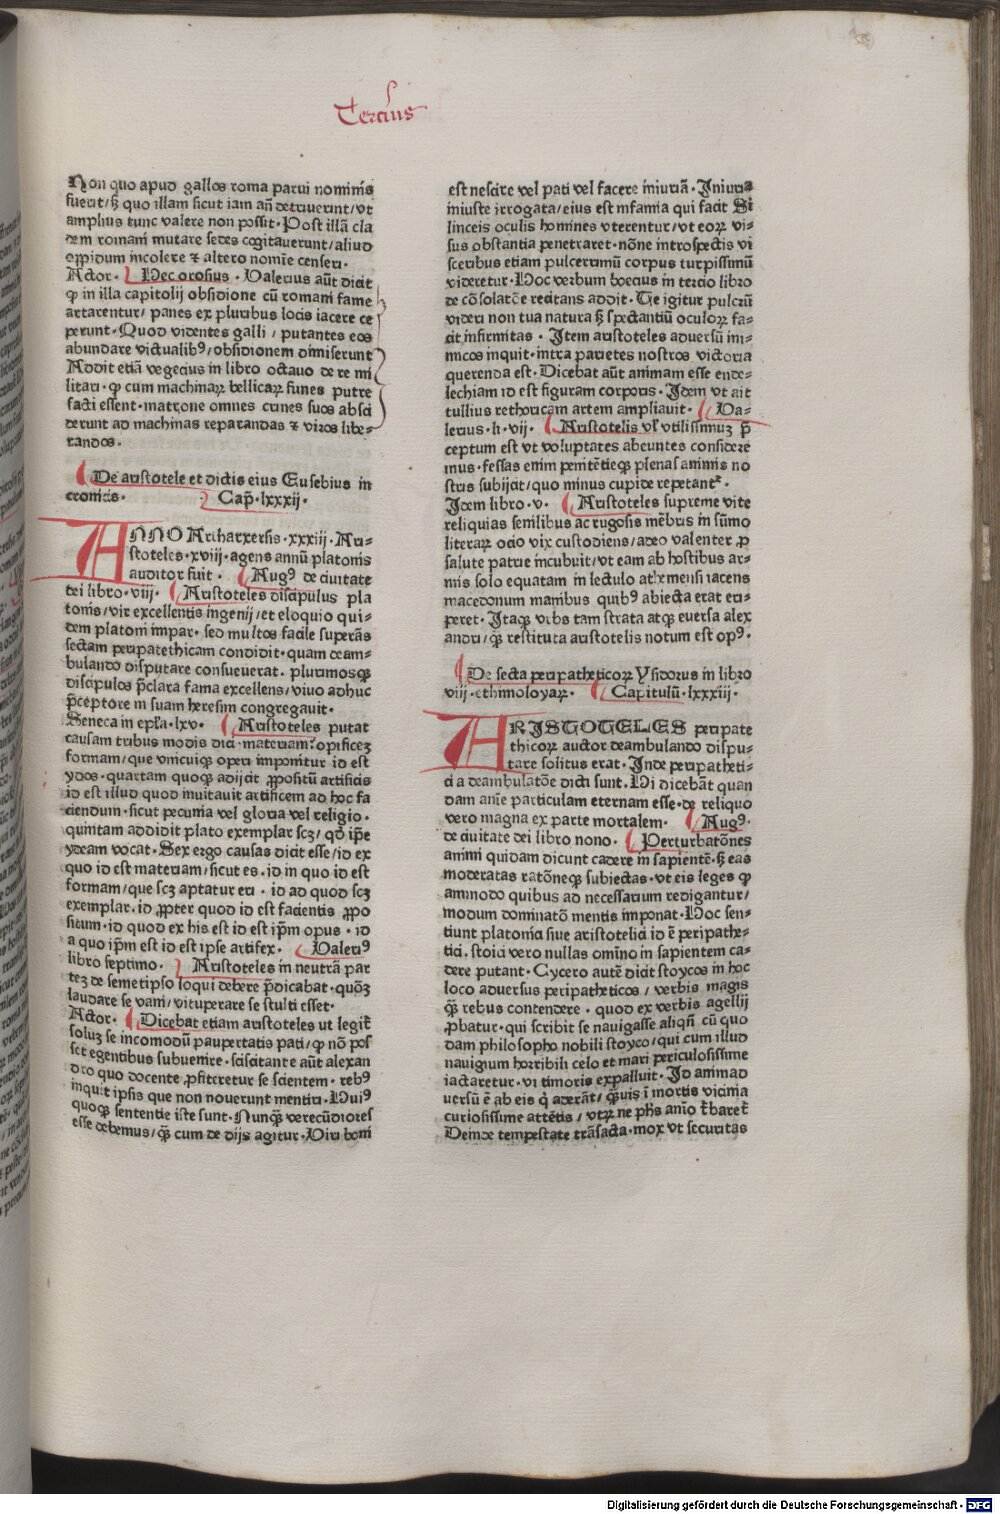 Tercius
Non quo apud gallos roma parui nominis
fuerit/sꝫ quo illam sicut iam an̄ detriuerint/vt
amplius tunc valere non possit·Post illā cla
dem romani mutare sedes cogitauerunt/aliud
oppidum incolere ⁊ altero nomīe censeri·
Actor· Hec orosius· Valerius aūt dicit
ꝙ in illa capitolij obsidione cū romani fame
artarentur/panes ex pluribus locis iacere ce
perunt·Quod videntes galli/putantes eos
abundare victualibꝰ/obsidionem dimiserunt
Addit etiā vegecius in libro octauo de re mi
litari·ꝙ cum machinaꝝ bellicaꝝ funes putre
facti essent·matrone omnes crines suos absci
derunt ad machinas reparandas ⁊ viros libe⸗
randos·
De aristotele et dictis eius Eusebius in
cronicis· Cap̄·lxxxij·
ANNO Artharxersis·xxxiij·Ari⸗
stoteles·xviij·agens annū platonis
auditor fuit· Augꝰ de ciuitate
dei libro·viij· Aristoteles discipulus pla
tonis/vir excellentis ingenij/et eloquio qui⸗
dem platoni impar·sed multos facile superās
sectam peripatethicam condidit·quam deam⸗
bulando disputare consueuerat·plurimosqꝫ
discipulos p̄clara fama excellens/viuo adhuc
p̄ceptore in suam heresim congregauit·
Seneca in epl̄a·lxv· Aristoteles putat
causam tribus modis dici·materiam·opificeꝫ
formam/que vnicuiqꝫ operi imponitur id est
ydos·quartam quoqꝫ adijcit ꝓpositū artificis
id est illud quod inuitauit artificem ad hoc fa
ciendum·sicut pecunia vel gloria vel religio·
quintam addidit plato exemplar scꝫ/qd̄ ip̄e
ydeam vocat·Sex ergo causas dicit esse/id ex
quo id est materiam/sicut es·id in quo id est
formam/que scꝫ aptatur eri·id ad quod scꝫ
exemplar·id ꝓpter quod id est facientis ꝓpo
situm·id quod ex his est id est ip̄m opus·id
a quo ip̄m est id est ipse artifex· Valeriꝰ
libro septimo· Aristoteles in neutrā par
teꝫ de semetipso loqui debere p̄dicabat·quoꝫ
laudare se vani/vituperare se stulti esset·
Actor· Dicebat etiam aristoteles ut legit̄
soluꝫ se incomodū paupertatis pati/ꝙ nō pos
set egentibus subuenire·sciscitante aūt alexan
dro quo docente ꝓfiteretur se scientem·rebꝰ
inquit ipsis que non nouerunt mentiri·Huiꝰ
quoqꝫ sententie iste sunt·Nunqꝫ verecūdiores
esse debemus/qꝫ cum de dijs agitur·Viri boni
est nescire vel pati vel facere iniuriā·Iniuria
iniuste irrogata/eius est infamia qui facit Si
linceis oculis homines vterentur/vt eoꝝ vi⸗
sus obstantia penetraret·nōne introspectis vi
sceribus etiam pulcerrimū corpus turpissimū
videretur·Hoc verbum boecius in tercio libro
de cōsolatōe recitans addit·Te igitur pulcrū
videri non tua natura sꝫ spectantiū oculoꝝ fa⸗
cit infirmitas·Item aristoteles aduersū ini⸗
micos inquit·intra parietes nostros victoria
querenda est·Dicebat aūt animam esse ende⸗
lechiam id est figuram corporis·Idem vt ait
tullius rethoricam artem ampliauit· Va⸗
lerius·li·vij· Aristotelis vl̄ vtilissimuꝫ p̄
ceptum est vt voluptates abeuntes considere
mus·fessas enim penitētieqꝫ plenas animis no
stris subijcit/quo minus cupide repetant·
Idem libro·v· Aristoteles supreme vite
reliquias senilibus ac rugosis mēbris in sūmo
literaꝝ ocio vix custodiens/adeo valenter ꝓ
salute patrie incubuit/vt eam ab hostibus ar⸗
mis solo equatam in lectulo atheniensi iacens
macedonum manibus quibꝰ abiecta erat eri⸗
peret·Itaqꝫ vrbs tam strata atqꝫ euersa alex
andri/qꝫ restituta aristotelis notum est opꝰ·
De secta peripatheticoꝝ Ysidorus in libro
viij·ethimoloyaꝝ· Capitulū·lxxxiij·
ARISTOTELES peripate
thicoꝝ auctor deambulando dispu⸗
tare solitus erat·Inde peripatheti⸗
ci a deambulatōe dicti sunt·Hi dicebāt quan
dam aīe particulam eternam esse·de reliquo
vero magna ex parte mortalem· Augꝰ·
de ciuitate dei libro nono· Perturbatōnes
animi quidam dicunt cadere in sapientē·sꝫ eas
moderatas ratōneqꝫ subiectas·vt eis leges ꝙ
ammodo quibus ad necessarium redigantur/
modum dominatō mentis imponat·Hoc sen⸗
tiunt platonici siue aristotelici id ē peripathe⸗
tici·stoici vero nullas omīno in sapientem ca⸗
dere putant·Cycero autē dicit stoycos in hoc
loco aduersus peripatheticos/verbis magis
qꝫ rebus contendere·quod ex verbis agellij
ꝓbatur·qui scribit se nauigasse aliqn̄ cū quo
dam philosopho nobili stoyco/qui cum illud
nauigium horribili celo et mari periculosissime
iactaretur·vi timoris expalluit·Id animad
uersū ē ab eis q̇ aderāt/qꝫuis ī mortis vicinia
curiosissime attētis/vtꝝ ne ph̄s anīo t̄baret̄
Deinde tempestate trāsacta·mox vt securitas
Digitalisierung gefördert durch die Deutsche Forschungsgemeinschaft - DFG